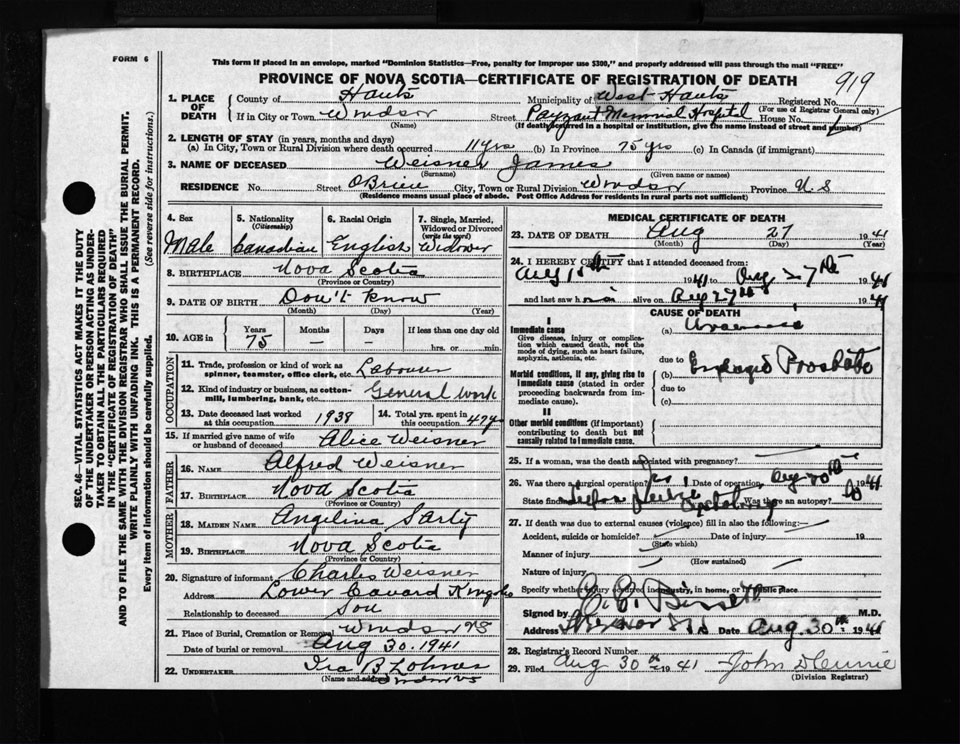 FORM 6
This form if placed in an envelope, marked "Dominion Statistics—Free, penalty for improper use $300," and properly addressed will pass through the mail "FREE"
PROVINCE OF NOVA SCOTIA—CERTIFICATE OF REGISTRATION OF DEATH
919
1. PLACE OF DEATH { County of Hants Municipality of West Hants Registered No.
(For use of Registrar General only)
If in City or Town Windsor Street Payzant Memorial Hospital House No.
(Name) (If death occurred in a hospital or institution, give the name instead of street and number)
2. LENGTH OF STAY (in years, months and days)
(a) In City, Town or Rural Division where death occurred 11 yrs (b) In Province 75 yrs (c) In Canada (if immigrant)
3. NAME OF DECEASED Weisner James
(Surname) (Given name or names)
RESIDENCE No. Street OBrien City, Town or Rural Division Windsor Province N.S
(Residence means usual place of abode. Post Office Address for residents in rural parts not sufficient)
4. Sex 5. Nationality (Citizenship) 6. Racial Origin 7. Single, Married, Widowed or Divorced (write the word)
Male Canadian English Widower
8. BIRTHPLACE Nova Scotia
(Province or Country)
9. DATE OF BIRTH Don't know
(Month) (Day) (Year)
10. AGE in Years Months Days If less than one day old
75 – – hrs. or min.
OCCUPATION
11. Trade, profession or kind of work as spinner, teamster, office clerk, etc. Labourer
12. Kind of industry or business, as cotton-mill, lumbering, bank, etc. General work
13. Date deceased last worked at this occupation 1938 14. Total yrs. spent in this occupation
15. If married give name of wife or husband of deceased Alice Weisner
FATHER
16. NAME Alfred Weisner
17. BIRTHPLACE Nova Scotia
MOTHER
18. MAIDEN NAME Angelina Sarty
19. BIRTHPLACE Nova Scotia
(Province or Country)
20. Signature of informant Charles Weisner
Address Lower
Relationship to deceased Son
21. Place of Burial, Cremation or Removal Windsor NS
Date of burial or removal Aug 30. 1941
22. UNDERTAKER Ira B
(Name and address) Windsor NS
MEDICAL CERTIFICATE OF DEATH
23. DATE OF DEATH Aug 27 1941
(Month) (Day) (Year)
24. I HEREBY CERTIFY that I attended deceased from:
Aug 1941 to Aug 27th 1941
and last saw him alive on Aug 27th 1941
CAUSE OF DEATH
I
Immediate cause (a) Uraemia
Give disease, injury or complication which caused death, not the mode of dying, such as heart failure, asphyxia, asthenia, etc.
due to
Morbid conditions, if any, giving rise to immediate cause (stated in order proceeding backwards from immediate cause). (b) Enlarged Prostate
due to
(c)
II
Other morbid conditions (if important) contributing to death but not causally related to immediate cause.
25. If a woman, was the death associated with pregnancy?
26. Was there a surgical operation? Yes Date of operation Aug 1941
State findings Was there an autopsy? No
27. If death was due to external causes (violence) fill in also the following:—
Accident, suicide or homicide? Date of injury 19
(State which)
Manner of injury
(How sustained)
Nature of injury
Specify whether injury occurred in industry, in home, or in public place
Signed by M.D.
Address Windsor N.S. Date Aug. 30th 1941
28. Registrar's Record Number
29. Filed Aug 30th 1941 John
(Division Registrar)
SEC. 46—VITAL STATISTICS ACT MAKES IT THE DUTY
OF THE UNDERTAKER OR PERSON ACTING AS UNDERTAKER TO OBTAIN ALL THE PARTICULARS REQUIRED
IN THE "CERTIFICATE OF REGISTRATION OF DEATH"
AND TO FILE THE SAME WITH THE DIVISION REGISTRAR WHO SHALL ISSUE THE BURIAL PERMIT.
WRITE PLAINLY WITH UNFADING INK. THIS IS A PERMANENT RECORD.
Every item of information should be carefully supplied. (See reverse side for instructions.)